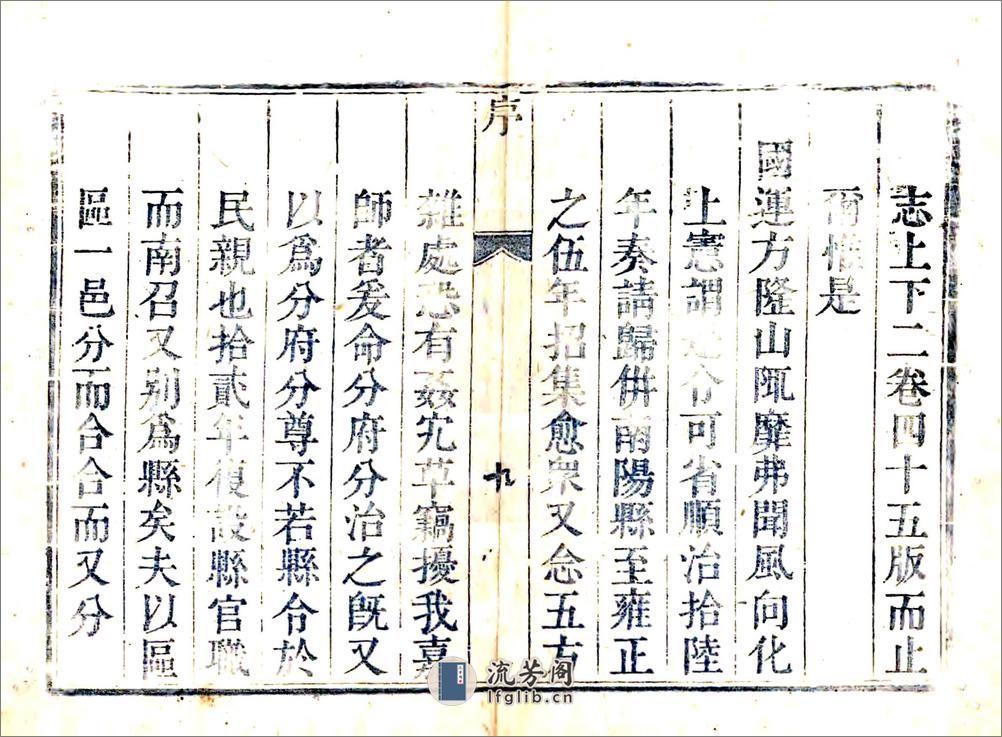 志上下二卷四十五版而止
爾惟是
國運方隆山陬靡弗聞風向化
上憲謂是令可省順治拾陸
年奏請歸併南陽縣至雍正
之伍年招集愈眾又念五方
序
九
雜處恐有姦宄草竊擾我嘉
師者爰命分府分治之旣又
以爲分府分尊不若縣令於
民親也拾貳年復設縣官職
而南召又别爲縣矣夫以區
區一邑分而合合而又分
流芳阁
lfglib.cn